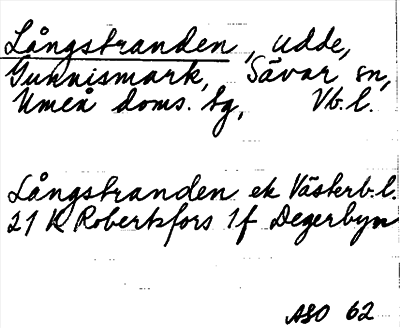 Långstranden, udde,
Gunnismark, Sävar sn,
Umeå doms. tg, Vb.l.
Långstranden ek Västerb.l.
21 K Robertsfors 1f Degerbyn
ASO 62